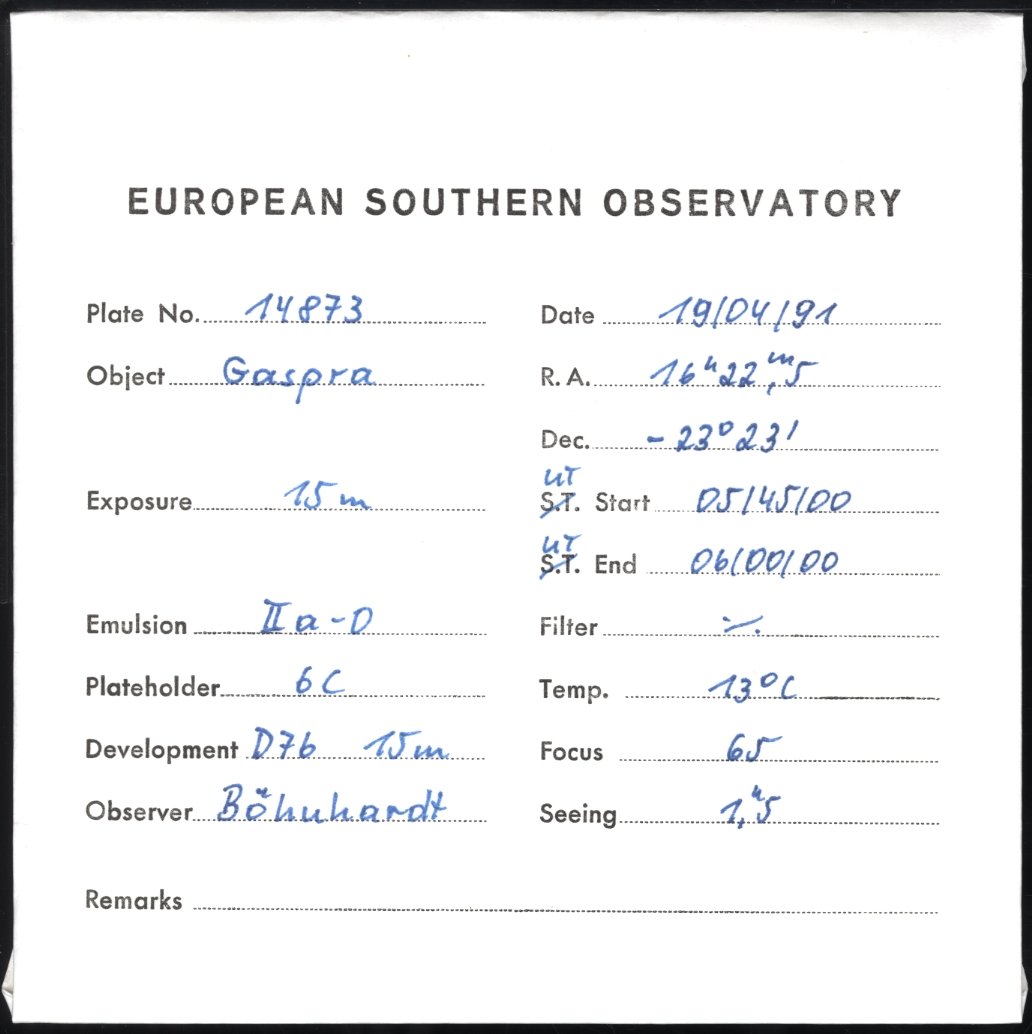 EUROPEAN SOUTHERN OBSERVATORY
Plate No. 14873 Date 19/04/91
Object Gaspra R.A. 16ʰ22ᵐ,5
Dec. -23°23'
Exposure 15m UT S.T. Start 05/45/00
UT S.T. End 06/00/00
Emulsion IIa-D Filter ⁒
Plateholder 6C Temp. 13°C
Development D76 15m Focus 65
Observer Böhnhardt Seeing 1,"5
Remarks